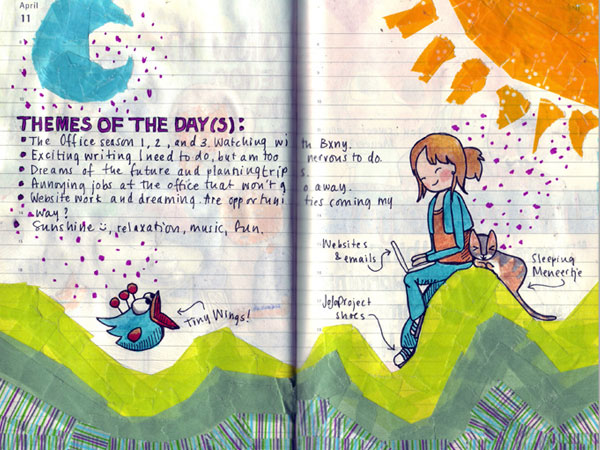 April
11
THEMES OF THE DAY(S):
• The Office season 1, 2, and 3. Watching with Bxny.
• Exciting writing I need to do, but am too nervous to do.
• Dreams of the future and planning trips.
• Annoying jobs at the office that won't go away.
• Website work and dreaming. Are opportunities coming my
way?
Sunshine ü, relaxation, music, fun.
Websites
& emails
Sleeping
Meneertje
JoJoProject
shoes
Tiny Wings!